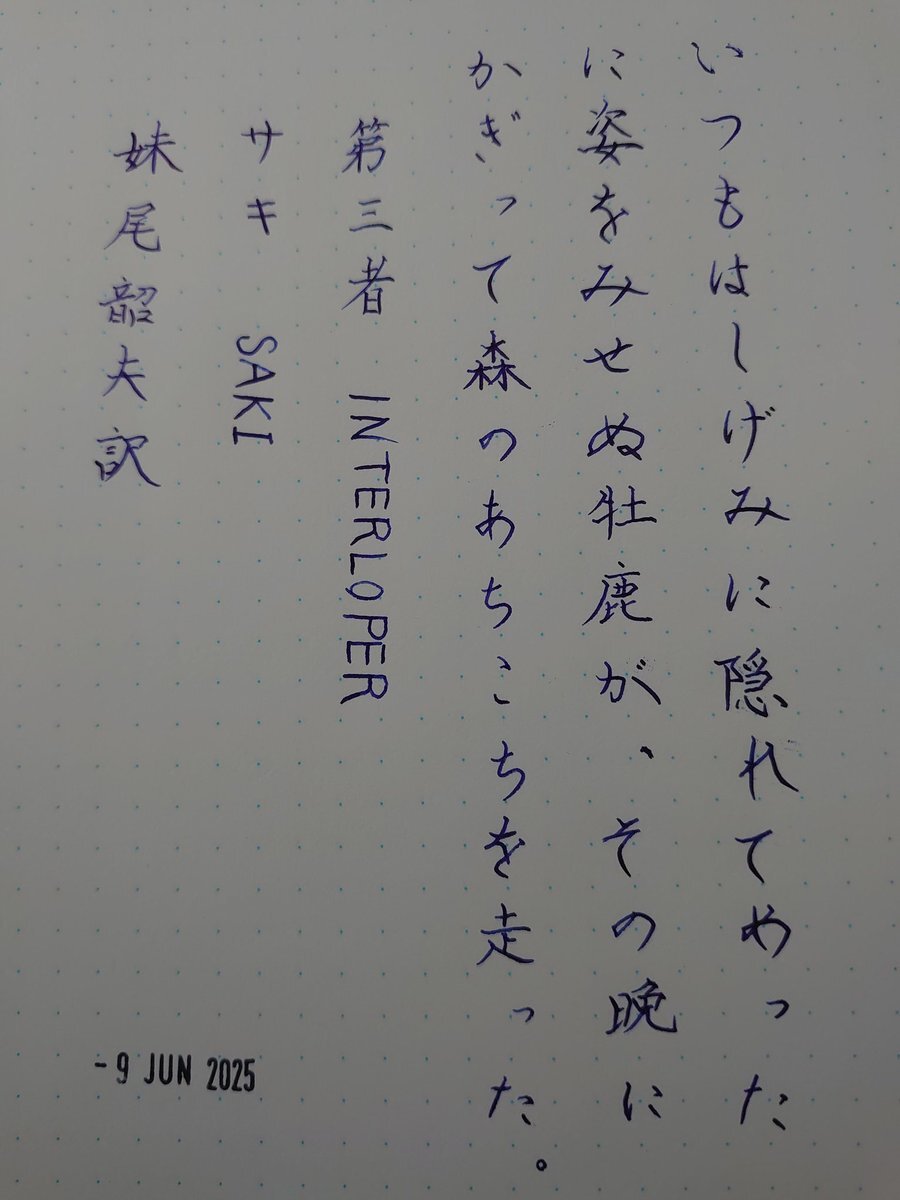 いつもはしげみに隠れてめった
に姿をみせぬ牡鹿が、その晩に
かぎって森のあちこちを走った。
第三者 INTERLOPER
サキ SAKI
妹尾韶夫訳
-9 JUN 2025